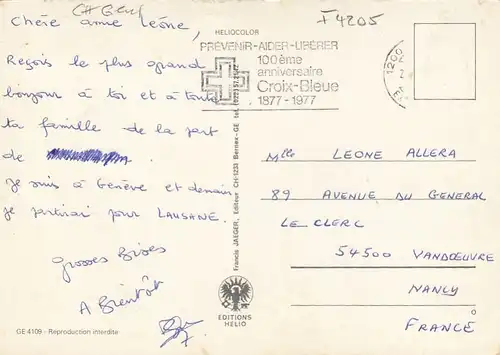 CH Genf
F4205
Chère amie Léone,
Reçois le plus grand
bonjour à toi et à toute
ta famille de la part
de
Je suis à Genève et demain
je partirai pour LAUSANE.
Grosses Bises
A Bientôt
GE 4109 - Reproduction interdite
HELIOCOLOR
PRÉVENIR-AIDER-LIBÉRER
100ème
anniversaire
Croix-Bleue
1877-1977
1200
Francis JAEGER, Editeur CH-1233 Bernex-GE tél.
EDITIONS
HELIO
Mlle LEONE ALLERA
89 AVENUE DU GENERAL
LE CLERC
54500 VANDOEUVRE
NANCY
FRANCE